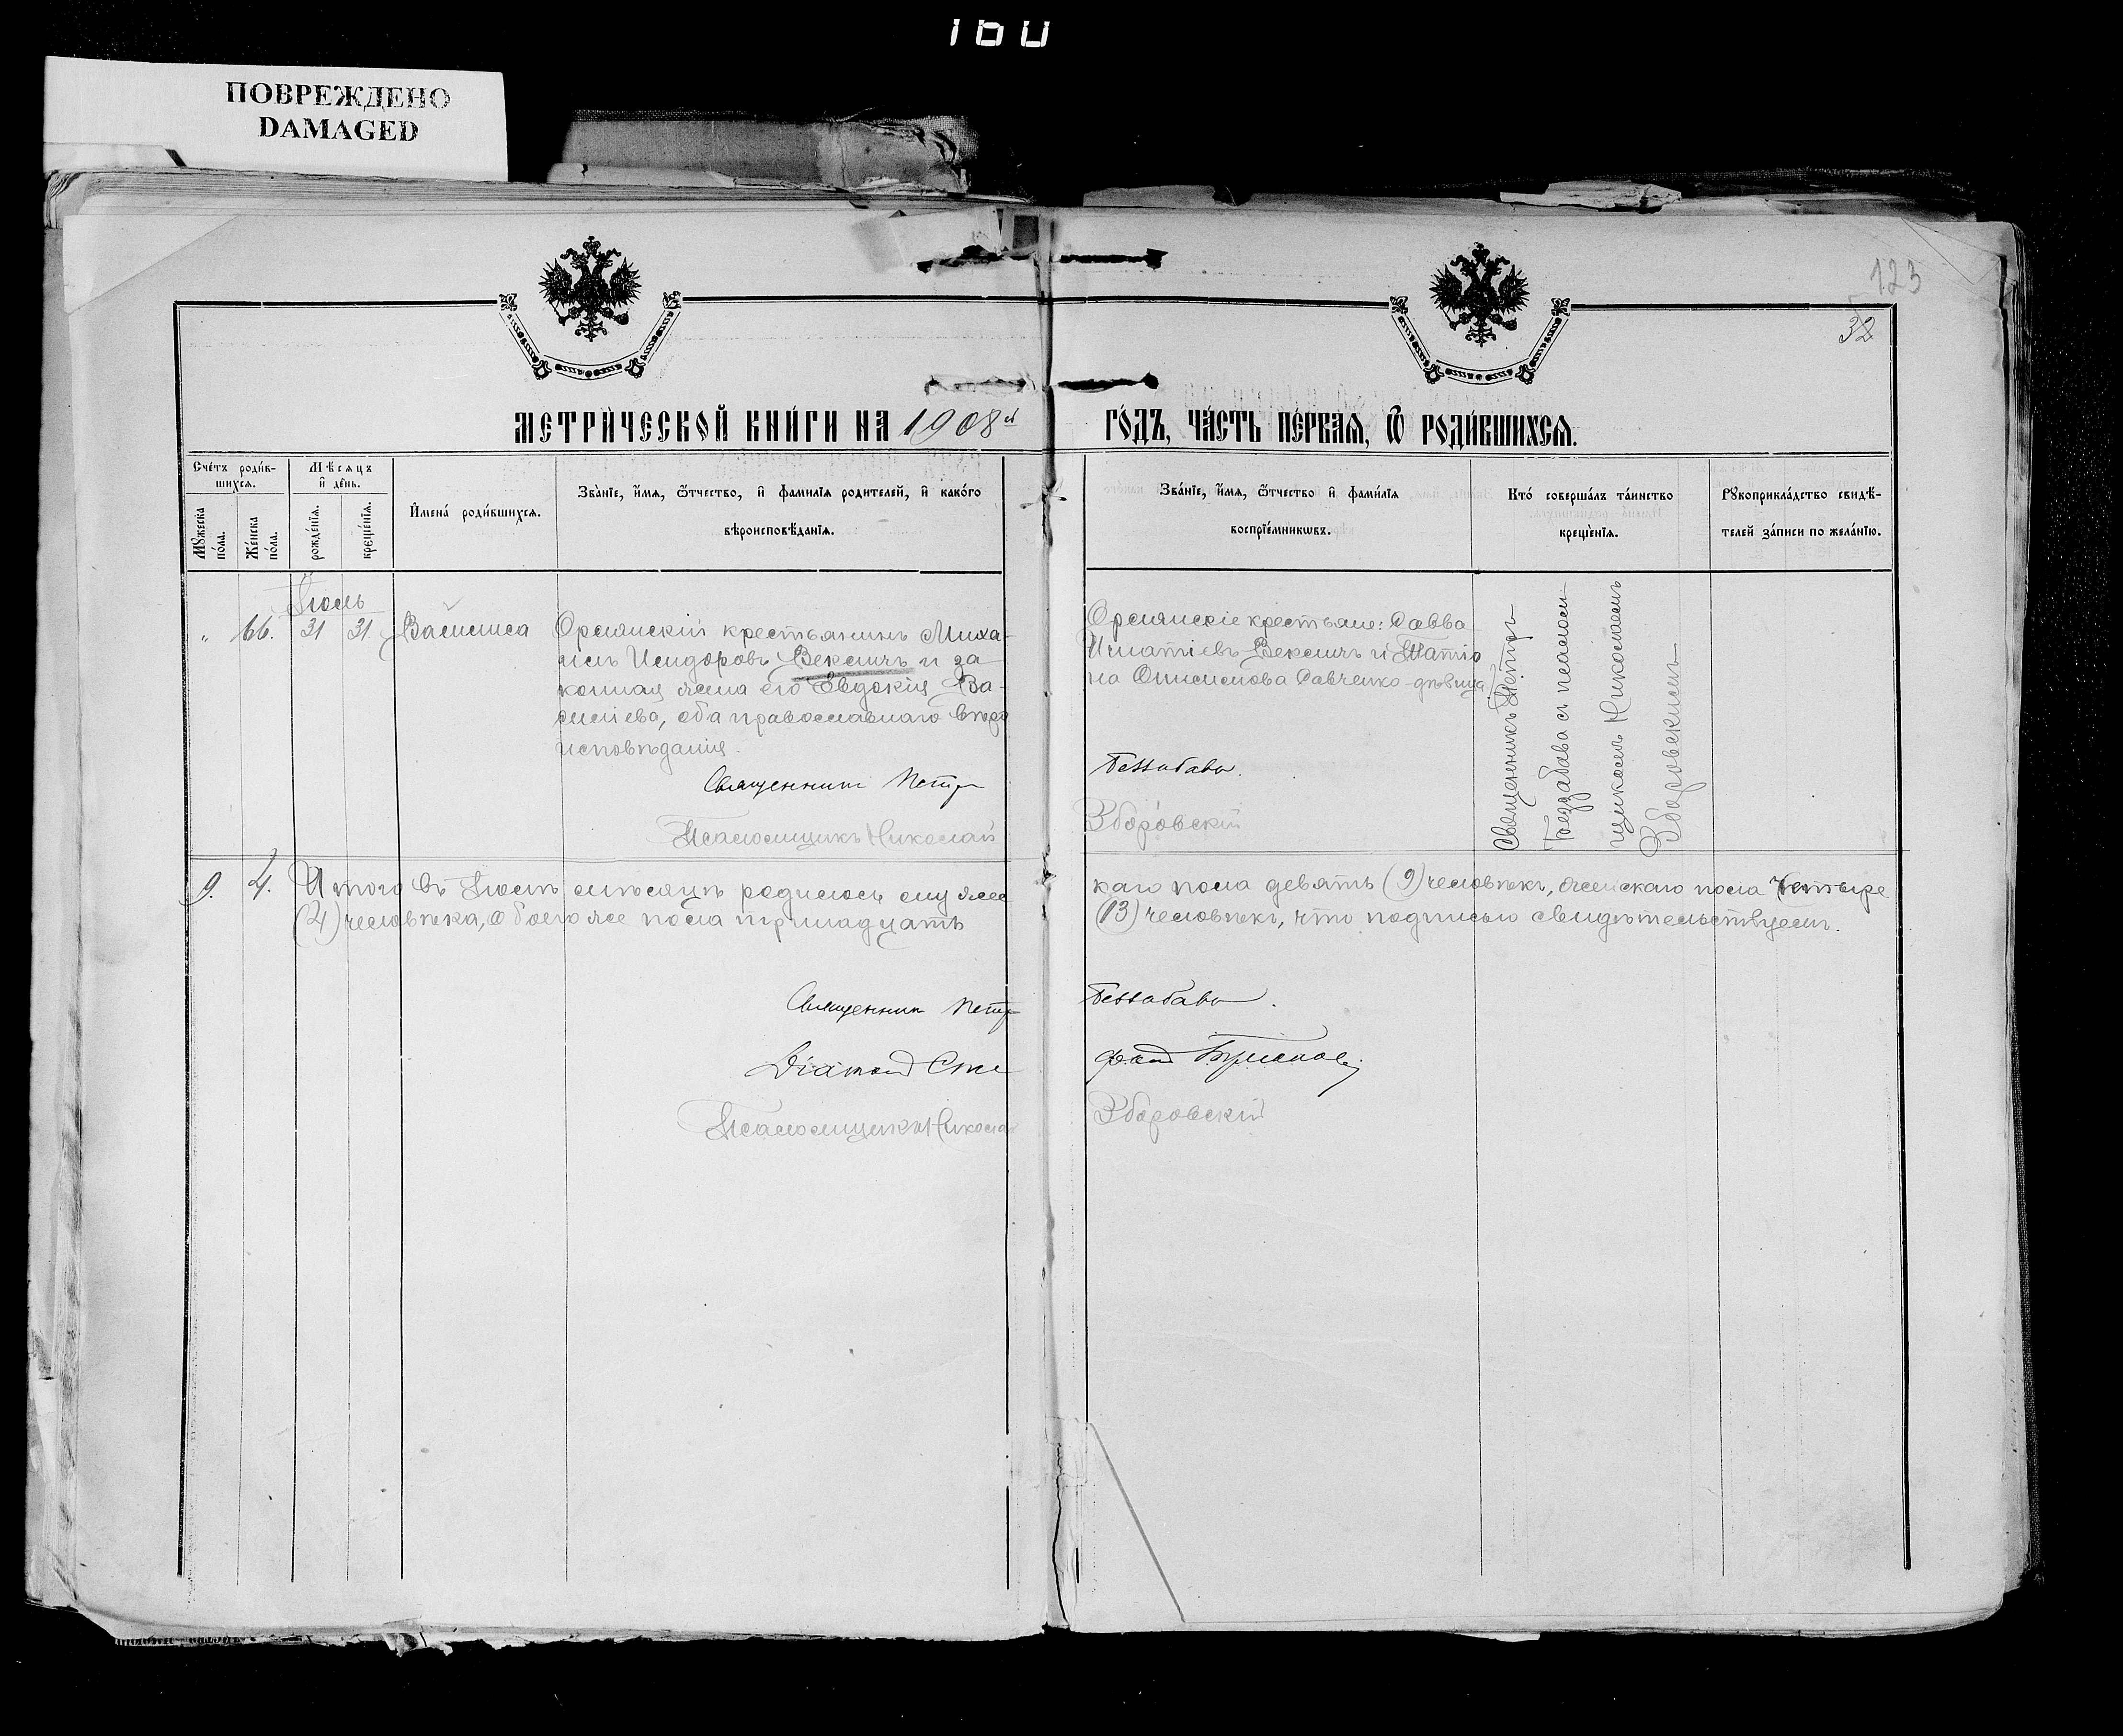 160
ПОВРЕЖДЕНО
DAMAGED
123
32
МЕТРИ́ЧЕСКОЙ КНИ́ГИ НА 1908й ГО́ДЪ, ЧА́СТЬ ПЕ́РВАЯ, Ѽ РОДИ́ВШИХСЯ.
Сче́тъ роди́в-
шихся.
Мꙋжеска
по́ла.
Же́нска
по́ла.
Мѣ́сяцъ
и҆ де́нь.
рожде́нїя.
креще́нїя.
И҆мена́ роди́вшихся.
Зва́нїе, и҆́мя, ѻ҆́тчество, и҆ фами́лїя роди́телей, и҆ како́гѡ
вѣроисповѣ́данїя.
Зва́нїе, и҆́мя, ѻ҆́тчество и҆ фами́лїя
воспрїе́мникѡвъ.
Кто́ соверша́лъ та́инство
креще́нїя.
Рꙋкоприкла́дство свидѣ́-
телей за́писи по жела́нїю.
Іюль
„ 66. 31 31 Васиписа
Орсиянскій крестьянинъ Миха-
илъ Исидоровъ Векличъ и за
конная жена его Евдокія Ва-
силіева, оба православнаго вѣро
исповѣданія.
Священникъ Петръ
Псаломщикъ Николай
крестьяне: Савва
Игнатіевъ Векличъ и Татіа
на Онисимова Савченко-дѣвица
Беззабава.
Зборовскій
Священникъ Петръ
Беззабава съ псалом-
щикомъ Николаемъ
Зборовскимъ
9. 4. Итого въ Іюлѣ мѣсяцѣ родилось мужес
каго пола девять (9) человѣкъ, женскаго пола четыре
(4) человѣка, обоего же пола тринадцать
(13) человѣкъ, что подписью свидѣтельствуемъ.
Священникъ Петръ Беззабава.
Псаломщикъ Николай Зборовскій